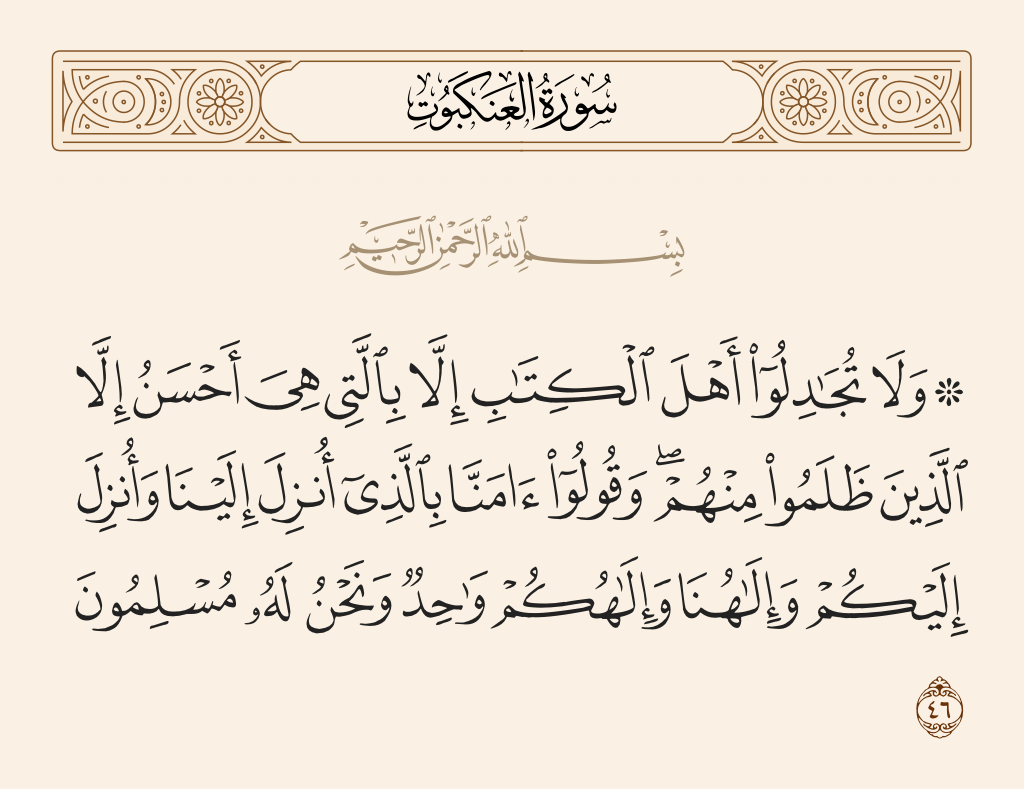 سُورَةُ العَنكَبُوتِ
بِسْمِ ٱللَّهِ ٱلرَّحْمَٰنِ ٱلرَّحِيمِ
۞ وَلَا تُجَٰدِلُوٓا۟ أَهْلَ ٱلْكِتَٰبِ إِلَّا بِٱلَّتِى هِىَ أَحْسَنُ إِلَّا
ٱلَّذِينَ ظَلَمُوا۟ مِنْهُمْ ۖ وَقُولُوٓا۟ ءَامَنَّا بِٱلَّذِىٓ أُنزِلَ إِلَيْنَا وَأُنزِلَ
إِلَيْكُمْ وَإِلَٰهُنَا وَإِلَٰهُكُمْ وَٰحِدٌ وَنَحْنُ لَهُۥ مُسْلِمُونَ
٤٦